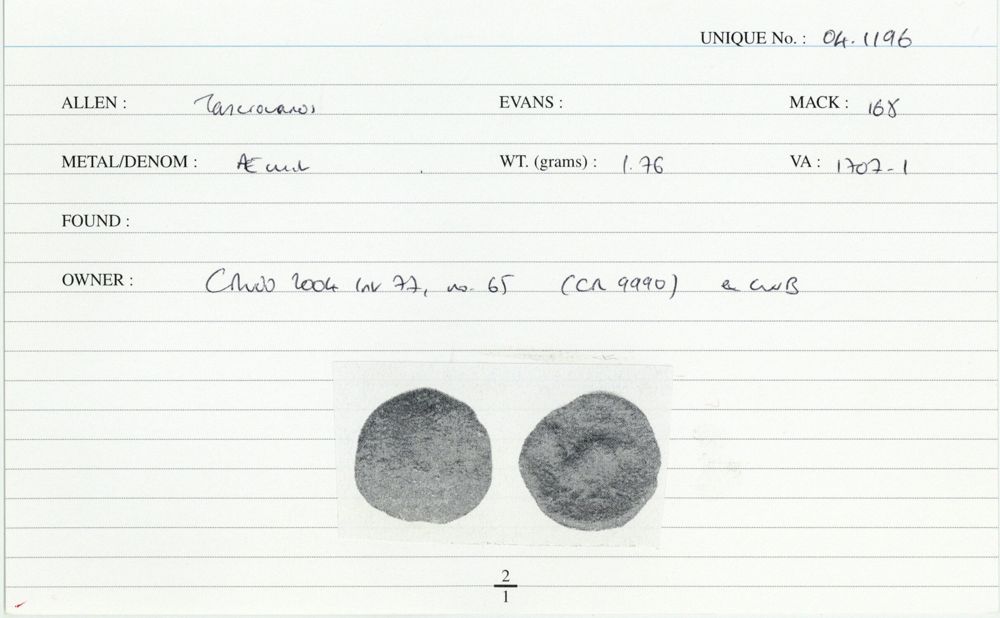 UNIQUE No. : 04.1196
ALLEN : Tasciovanos EVANS : MACK : 168
METAL/DENOM : Æ unit WT. (grams) : 1.76 VA : 1707-1
FOUND :
OWNER : 2004 77, no. 65 (CR 9990) ex
2
1